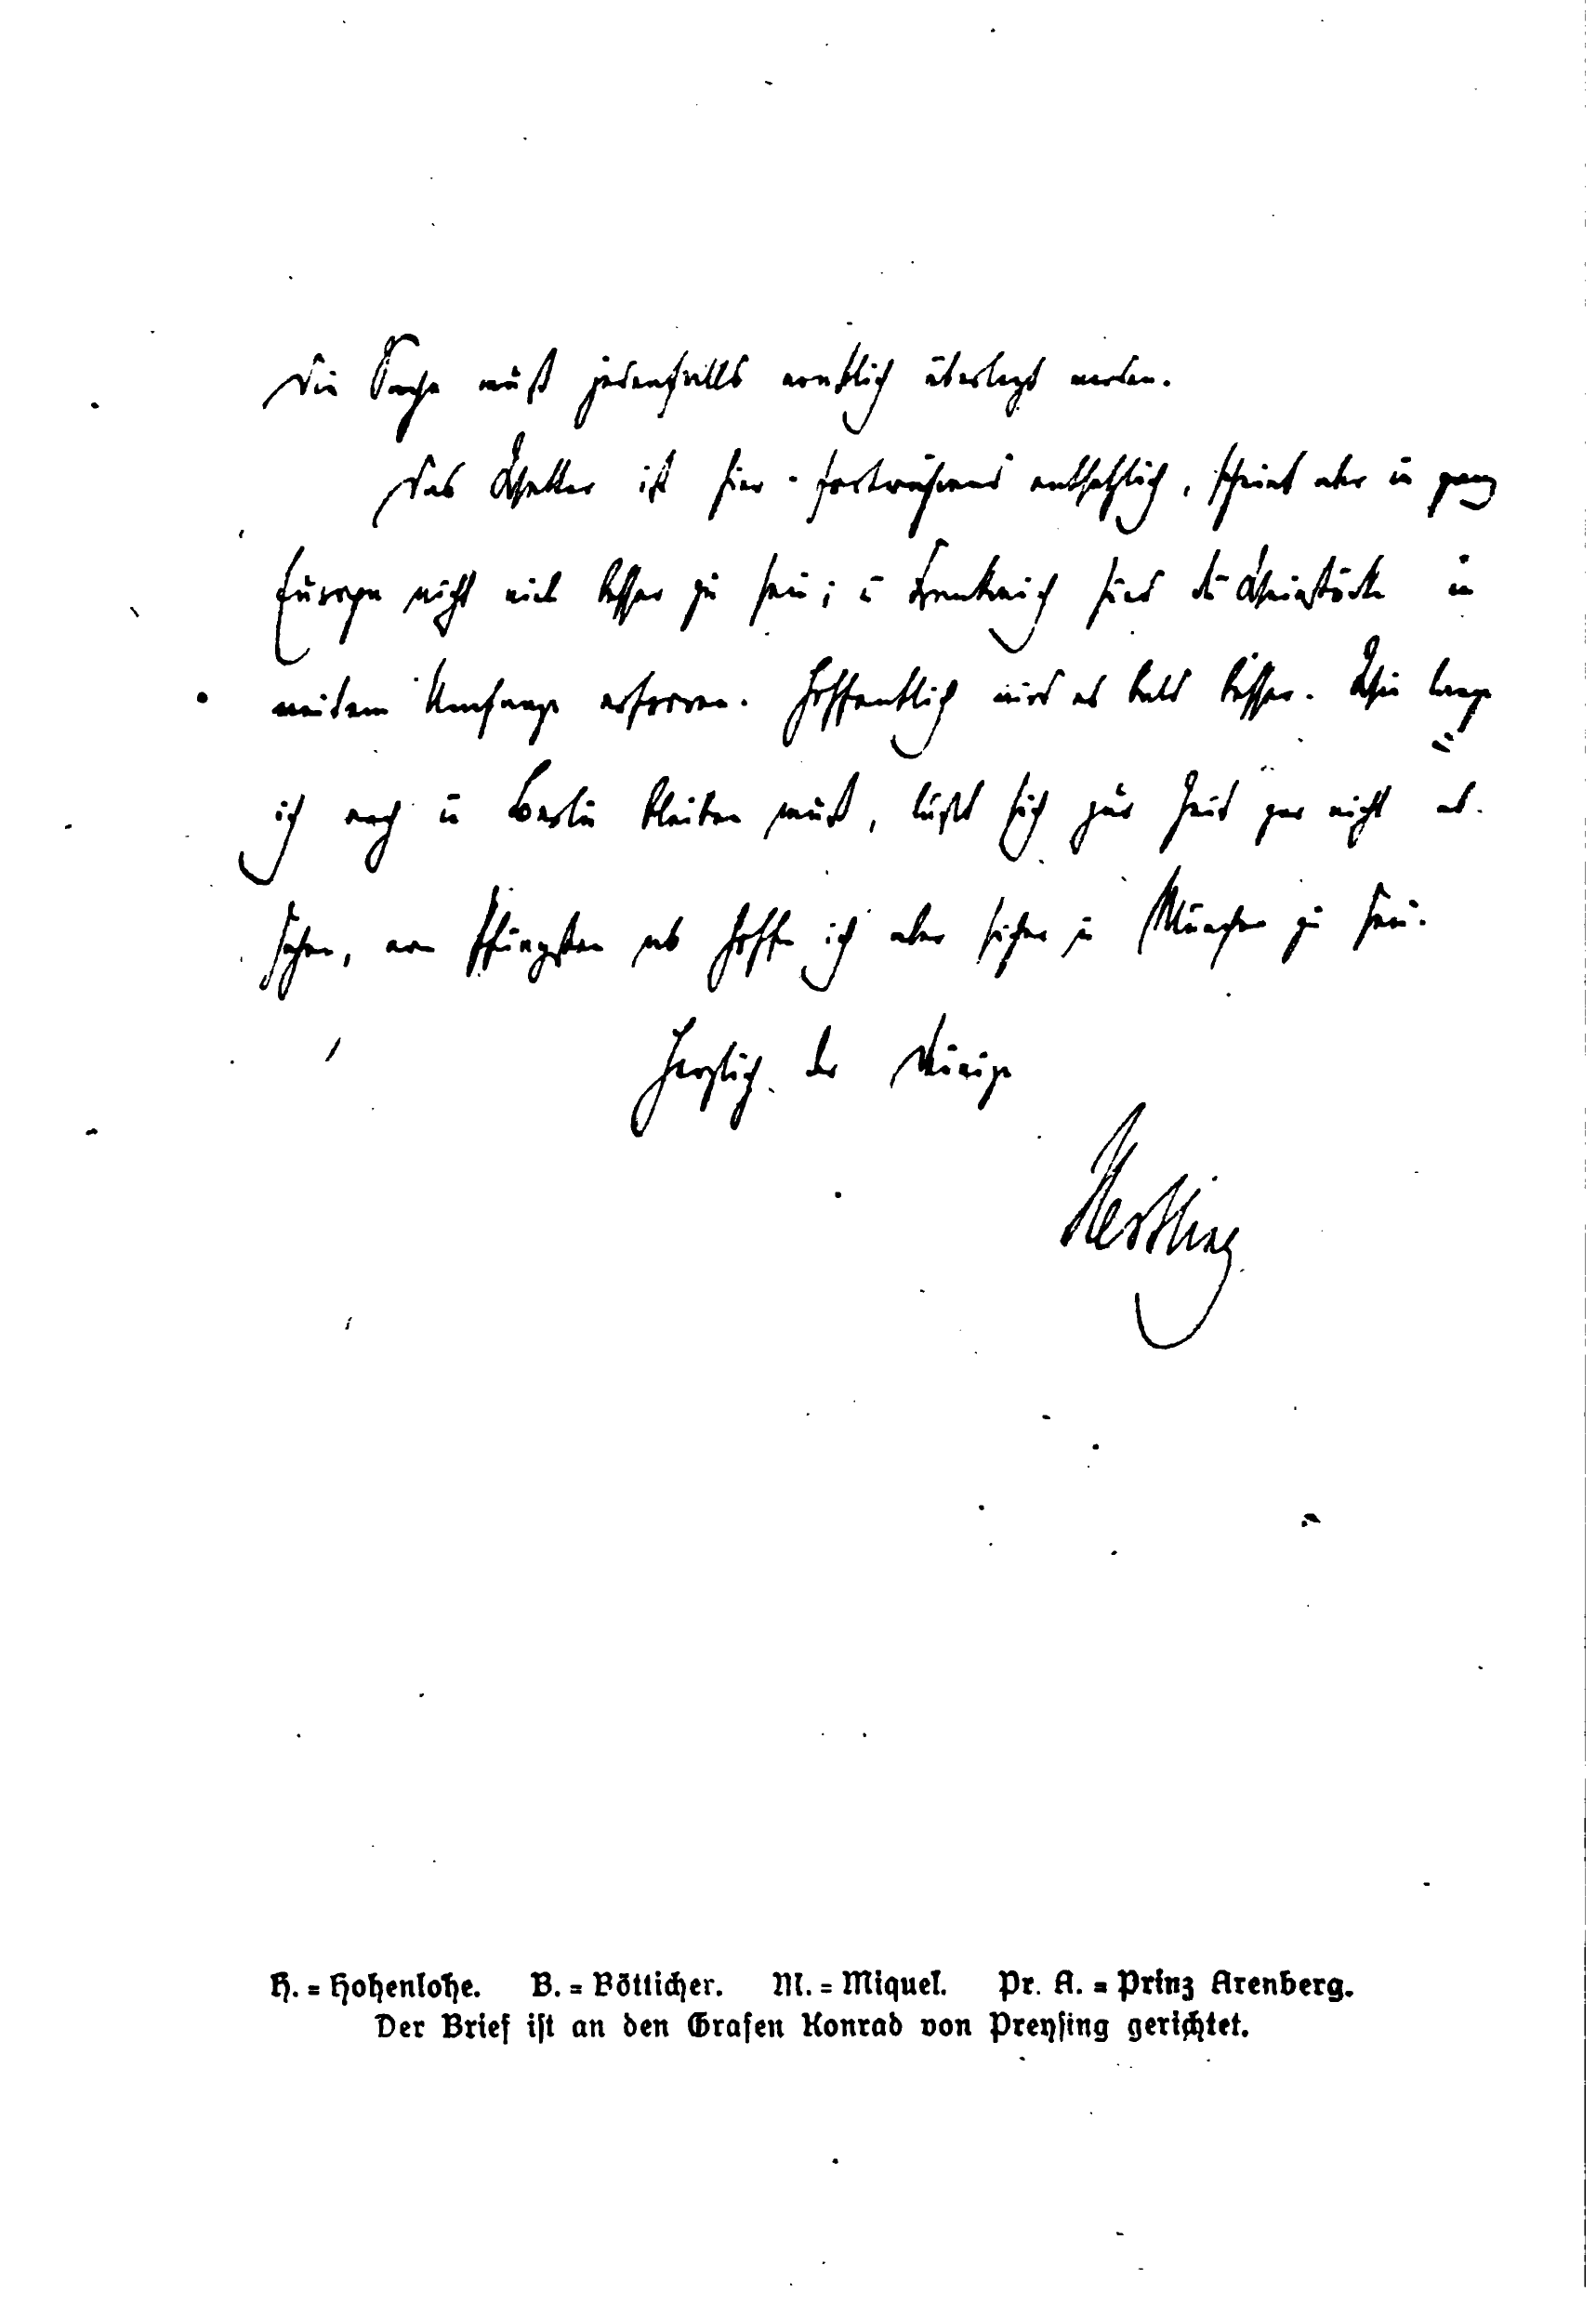 Die Sache muß jedenfalls ernstlich überlegt werden.
Das Wetter ist hier fortwährend entsetzlich, scheint aber in ganz
Europa nicht viel besser zu sein; in Frankreich sind die Weinstöcke in
weitem Umfange erfroren. Hoffentlich wird es bald besser. Wie lange
ich noch in Berlin bleiben muß, läßt sich zur Zeit gar nicht ab-
sehen, von Pfingsten ab hoffe ich aber sicher in München zu sein.
Herzlich der Deinige
Hertling
H. = Hohenlohe. B. = Bötticher. M. = Miquel. Pr. A. = Prinz Arenberg.
Der Brief ist an den Grafen Konrad von Preysing gerichtet.